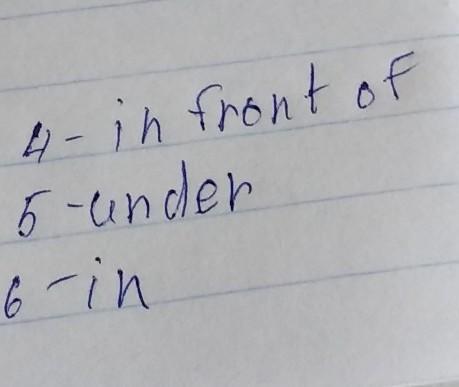 4- in front of
5 -under
6 -in